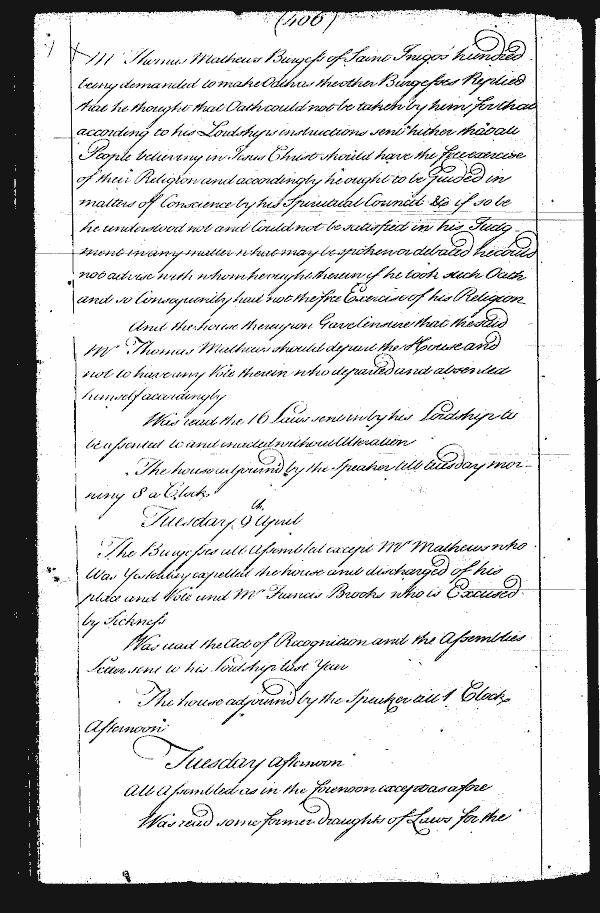 (406)
Mr Thomas Mathews Burgess of Saint Inigos hundred
being demanded to make Oath as the other Burgesses Replied
that he thought that Oath could not be taken by him for that
according to his Lordships instructions sent hither that all
People believing in Jesus Christ should have the free exercise
of their Religion and accordingly he ought to be Guided in
matters of Conscience by his Spiritual Council &a if so be
he understood not and Could not be satisfied in his Judg
ment in any matter what may be spoken or debated he could
not advise with whom he might therein if he took such Oath
and so Consequently had not the free Exercise of his Religion
And the house thereupon Gave Censure that the said
Mr Thomas Mathews should depart the House and
not to have any Vote therein who departed and absented
himself accordingly
Was read the 16 Laws sent in by his Lordship to
be assented to and enacted without alteration
The house adjourned by the Speaker till tuesday mor
ning 8 a Clock
Tuesday 9th April
The Burgesses all Assembled except Mr Mathews who
Was Yesterday expelled the house and discharged of his
place and Vote and Mr Francis Brooks who is Excused
by Sickness
Was read the Act of Recognition and the Assemblies
Letter sent to his Lordship last Year
The house adjourned by the Speaker till 1 Clock
Afternoon
Tuesday Afternoon
All Assembled as in the forenoon except as afore
Was read some former draughts of Laws for the